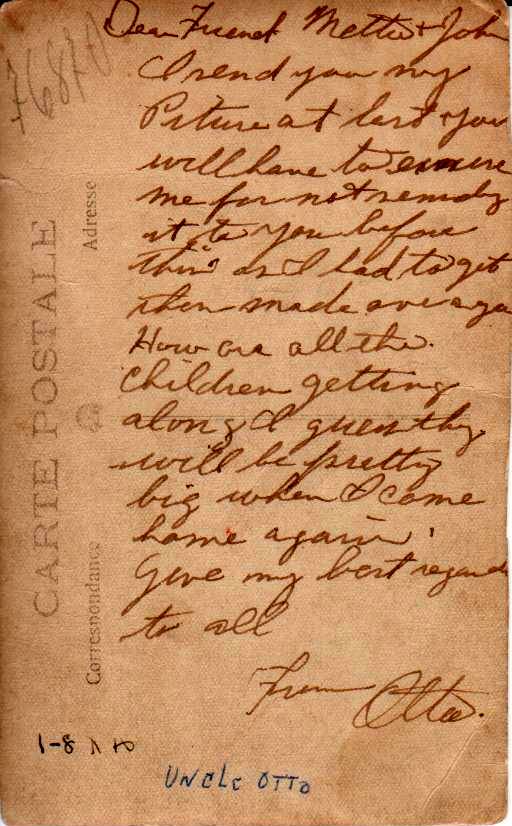 Dear Friend Metta + John
I send you my
Picture at last + you
will have to excuse
me for not sending
it to you before
this as I had to get
them made over again
How are all the
children getting
along I guess they
will be pretty
big when I come
home again
Give my best regards
to all
From Otto.
76870
CARTE POSTALE
Correspondance
Adresse
1-8
UNCLE OTTO